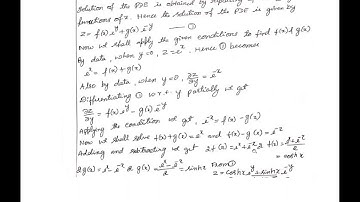 Solution of the PDE is obtained by replacing
functions of x. Hence the solution of the PDE is given by
Z = f(x) e^y + g(x) e^-y —— ①
Now we shall apply the given conditions to find f(x) & g(x)
By data, when y=0, Z = e^x. Hence ① becomes
e^x = f(x) + g(x)
Also by data, when y=0, ∂z/∂y = e^-x
Differentiating ① w.r.t y partially we get
∂z/∂y = f(x) e^y - g(x) e^-y
Applying the condition we get, e^-x = f(x) - g(x)
Now we shall solve f(x)+g(x) = e^x and f(x)-g(x) = e^-x
Adding and subtracting we get 2f(x) = e^x + e^-x or f(x) = = coshx
2g(x) = e^x - e^-x or g(x) = (e^x - e^-x)/2 = sinhx From ①
Z = coshx e^y + sinhx e^-y